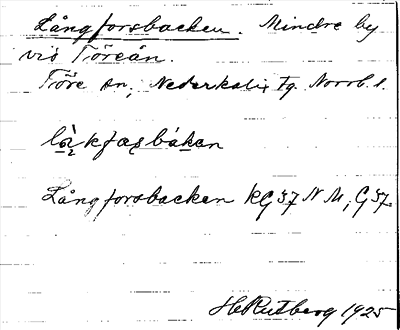 Långforsbacken. Mindre by
vid Töreån.
Töre sn, Nederkalix tg. Norrb. l.
Långforsbacken KG 37 N M, G 37.
H Rutberg 1925